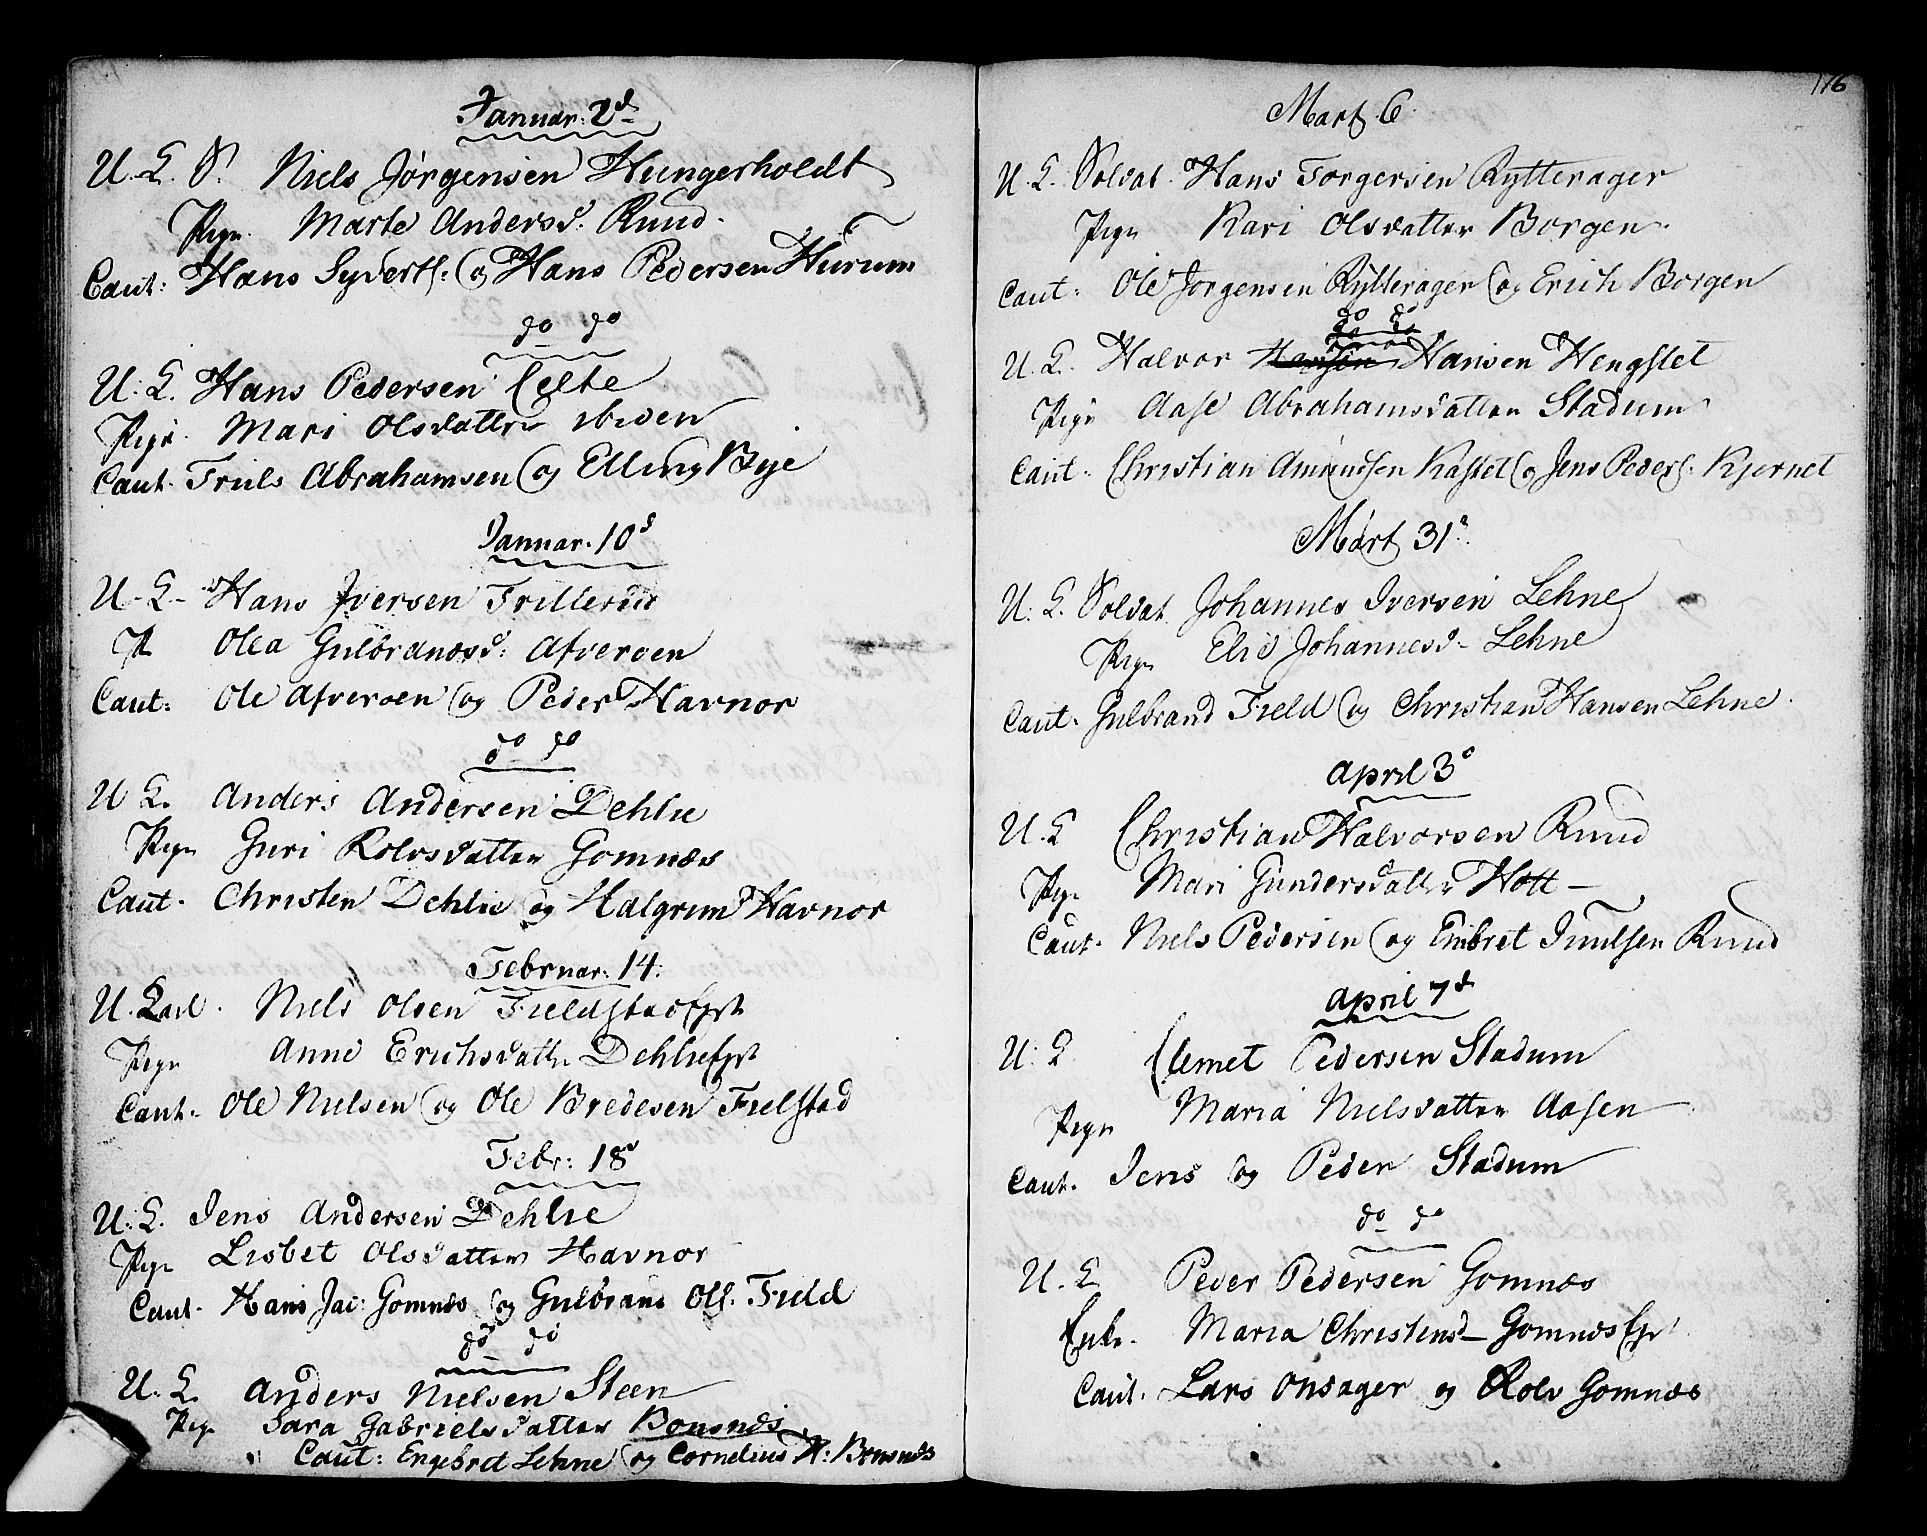 Januar: 2d
U. K. S. Niels Jørgensen Hungerholdt
Pige. Marte Andersd: Ruud.
Caut: Hans Syverts: og Hans Pedersen Hurum
do do
U. K. Hans Pedersen Celte
Pige. Mari Olsdatter ibiden
Caut. Friels Abrahamsen og Elling Bye
Januar. 10d
U. K. Hans Iversen Frillerud
P. Olea Gulbrandsd: Afveroen
Caut: Ole Afveroen og Peder Havnor
do do
U K. Anders Andersen Dehlie
Pige Guri Rolvsdatter Gomnæs
Caut. Christen Dehlie og Halgrim Havnor
Februar: 14.
U. Karl. Niels Olsen Fieldstadejet
Pige Anne Erichsdatter Dehliejet
Caut. Ole Nielsen og Ole Bredesen Fielstad
Febr: 18d
U. K. Jens Andersen Dehlie
Pige Lisbet Olsdatter Havnor
Caut. Hans Jac: Gomnæs og Gulbrand Ols. Field
do do
U. K. Anders Nielsen Steen
Pige Sara Gabrielsdatter Bonsnæs
Caut: Engebret Lehne og Cornelius N: Bonsnæs
176
Mart. 6
U. K. Soldat. Hans Torgersen Rytterager
Pige Kari Olsdatter Borgen.
Caut: Ole Jørgensen Rytterager og Erich Borgen
do do
U. K. Halvor Hansen Hengslet
Pige Aase Abrahamsdatter Stadum
Caut. Christian Amundsen Kastet og Jens Peders. Kjernet
Mart 31d
U. K. Soldat Johannes Iversen Lehne
Pige Elie Johannesd. Lehne
Caut. Gulbrand Field og Christian Hansen Lehne.
April 3d
U. K Christian Halvorsen Ruud
Pige Mari Gundersdatter Hott
Caut. Niels Pedersen og Embret Juulsen Ruud
April 7d
U. K. Clemet Pedersen Stadum
Pige Maria Nielsdatter Aasen
Caut. Jens og Peder Stadum
do do
U. K. Peder Pedersen Gomnæs
Enke. Maria Christensd. Gomnæs
Caut. Lars Onsager og Rolv Gomnæs